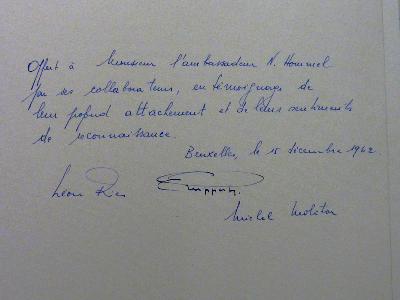 Offert à Monsieur l'ambassadeur N. Hommel
par ses collaborateurs, en témoignage de
leur profond attachement et de leurs sentiments
de reconnaissance.
Bruxelles, le 15 décembre 1962
Léon
Michel Molitor